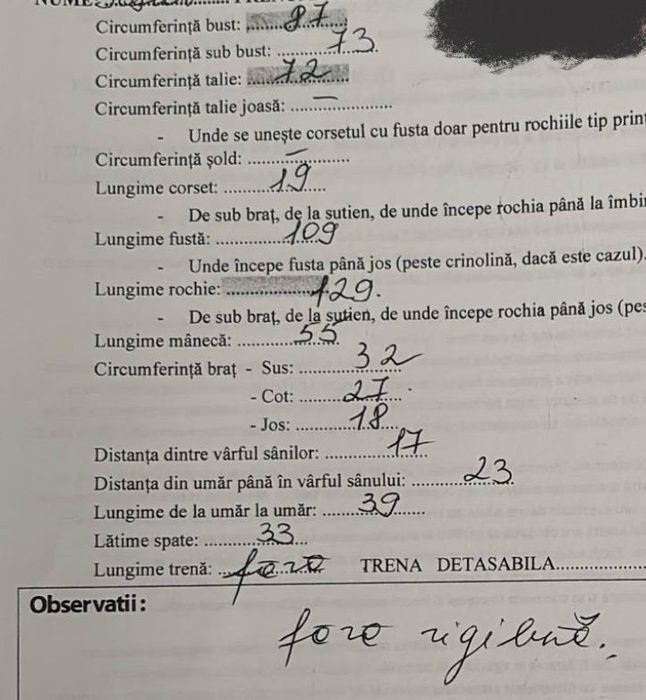 Circumferință bust: ....87....
Circumferință sub bust: ....73.
Circumferință talie: ....72....
Circumferință talie joasă: ....–....
- Unde se unește corsetul cu fusta doar pentru rochiile tip prin
Circumferință șold: ....–....
Lungime corset: ....19....
- De sub braț, de la sutien, de unde începe rochia până la îmbi
Lungime fustă: ....109
- Unde începe fusta până jos (peste crinolină, dacă este cazul).
Lungime rochie: ....129.
- De sub braț, de la sutien, de unde începe rochia până jos (pes
Lungime mânecă: ....55.
Circumferință braț - Sus: ....32
- Cot: ....27....
- Jos: ....18....
Distanța dintre vârful sânilor: ....17
Distanța din umăr până în vârful sânului: ....23.
Lungime de la umăr la umăr: ....39....
Lătime spate: ....33...
Lungime trenă: ..fara TRENA DETASABILA....
Observatii:
fara